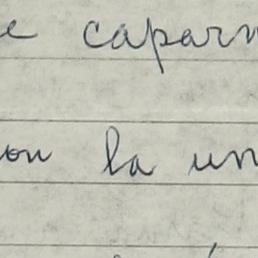 e caparr
on la un